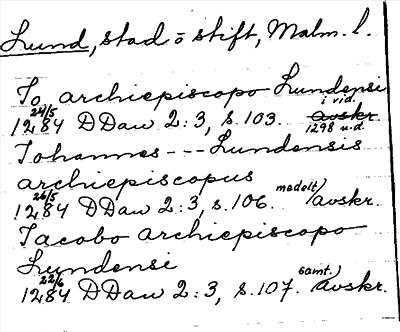 Lund, stad o stift, Malm. l.
Jo archiepiscopo Lundensi
24/5 i vid.
1284 DDan 2:3, s. 103. avskr.
1298 u.d.
Johannes --- Lundensis
archiepiscopus
26/5 medelt.)
1284 DDan 2:3, s. 106. avskr.
Jacobo archiepiscopo
Lundensi
22/6 samt.)
1284 DDan 2:3, s. 107. avskr.